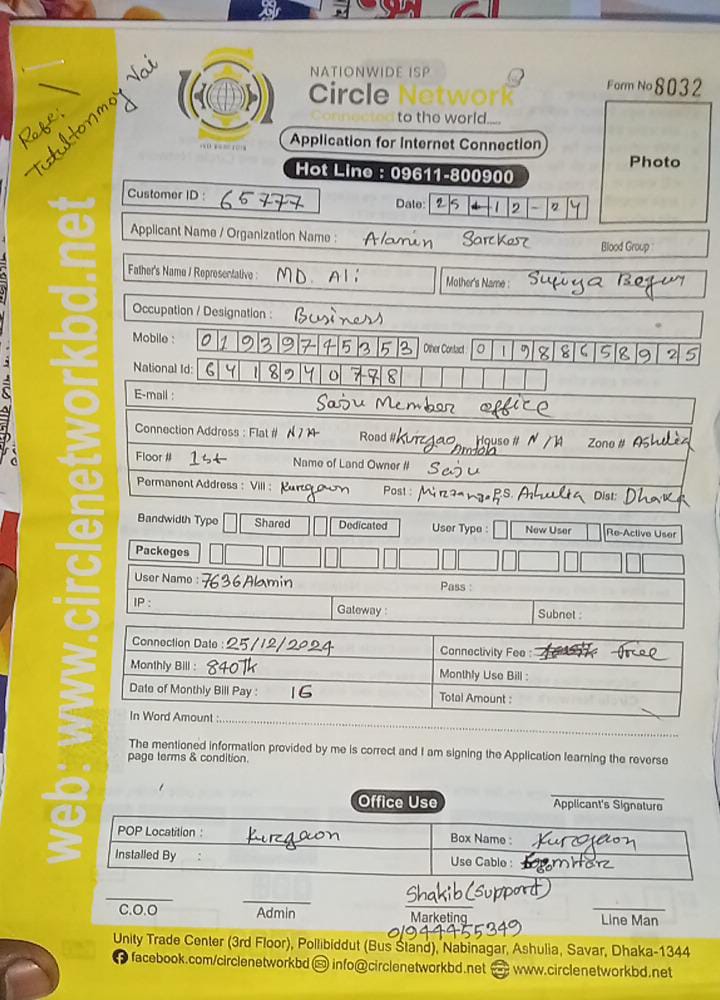 Refe:
Tutul tonmoy Vai
NATIONWIDE ISP
Circle Network
Connected to the world.....
Form No 8032
Application for Internet Connection
Hot Line : 09611-800900
Photo
Customer ID : 65777 Date: 25-12-24
Applicant Name / Organization Name : Alamin Sarker Blood Group :
Father's Name / Representative : MD. Ali Mother's Name : Sufiya Begum
Occupation / Designation : Business
Mobile : 01939745353 Other Contact 01988658925
National Id: 6418940778
E-mail :
Saju Member office
Connection Address : Flat # N/A Road # Kurgao Amtola House # N/A Zone # Ashulia
Floor # 1st Name of Land Owner # Saju
Permanent Address : Vill : Kurgaon Post : P.S. Ashulia Dist: Dhaka
Bandwidth Type Shared Dedicated User Type : New User Re-Active User
Packeges
User Name : 7636Alamin Pass :
IP : Gateway : Subnet :
Connection Date : 25/12/2024 Connectivity Fee : free
Monthly Bill : 840Tk Monthly Use Bill :
Date of Monthly Bill Pay : 16 Total Amount :
In Word Amount :
The mentioned information provided by me is correct and I am signing the Application learning the reverse
page terms & condition.
Office Use
Applicant's Signature
POP Locatition : Kurgaon Box Name : Kurgaon
Installed By : Use Cable :
Shakib (Support)
C.O.O Admin Marketing Line Man
01944455349
Unity Trade Center (3rd Floor), Pollibiddut (Bus Stand), Nabinagar, Ashulia, Savar, Dhaka-1344
facebook.com/circlenetworkbd info@circlenetworkbd.net www.circlenetworkbd.net
web: www.circlenetworkbd.net